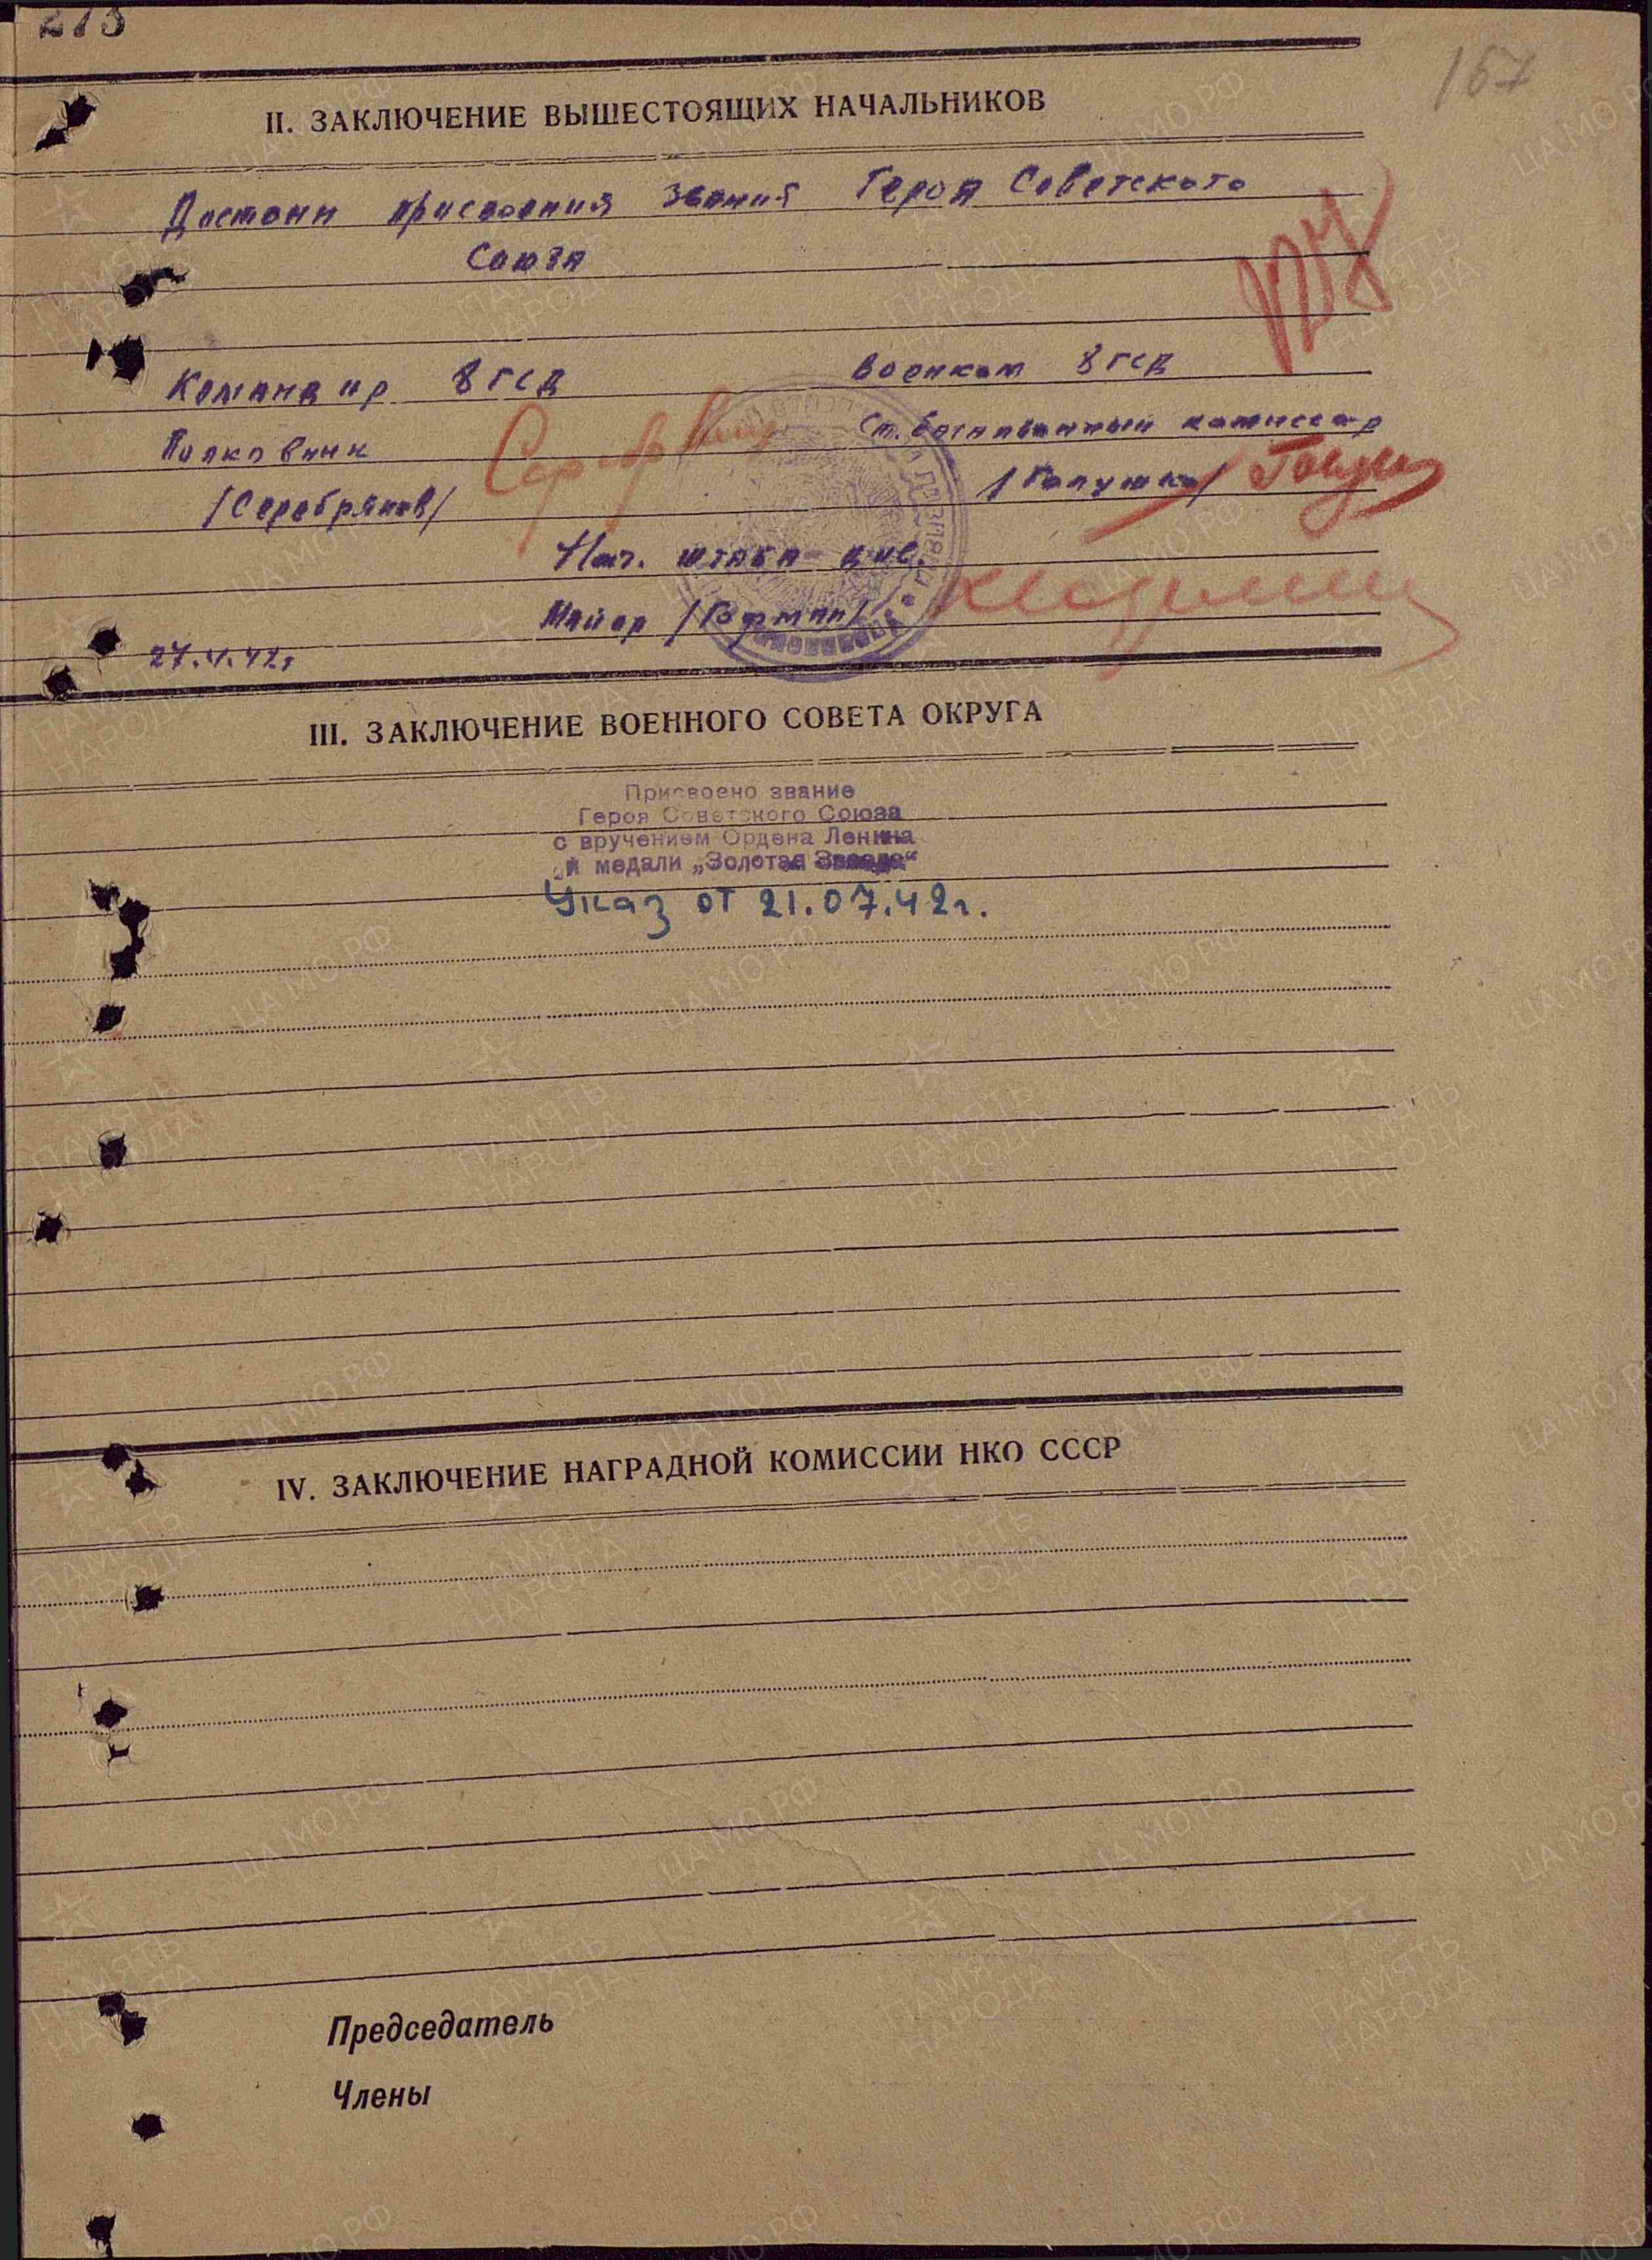 213
167
II. ЗАКЛЮЧЕНИЕ ВЫШЕСТОЯЩИХ НАЧАЛЬНИКОВ
Достоин присвоения звания Героя Советского
Союза
Командир 8 гсд Военком 8 гсд
Полковник Ст. батальонный комиссар
/Серебряков/ /Галушко/
Нач. штаба див.
Майор /Гофман/
III. ЗАКЛЮЧЕНИЕ ВОЕННОГО СОВЕТА ОКРУГА
Присвоено звание
Героя Советского Союза
с вручением Ордена Ленина
и медали „Золотая Звезда“
Указ от 21.07.42г.
IV. ЗАКЛЮЧЕНИЕ НАГРАДНОЙ КОМИССИИ НКО СССР
Председатель
Члены
ПАМЯТЬ НАРОДА
ЦА МО РФ